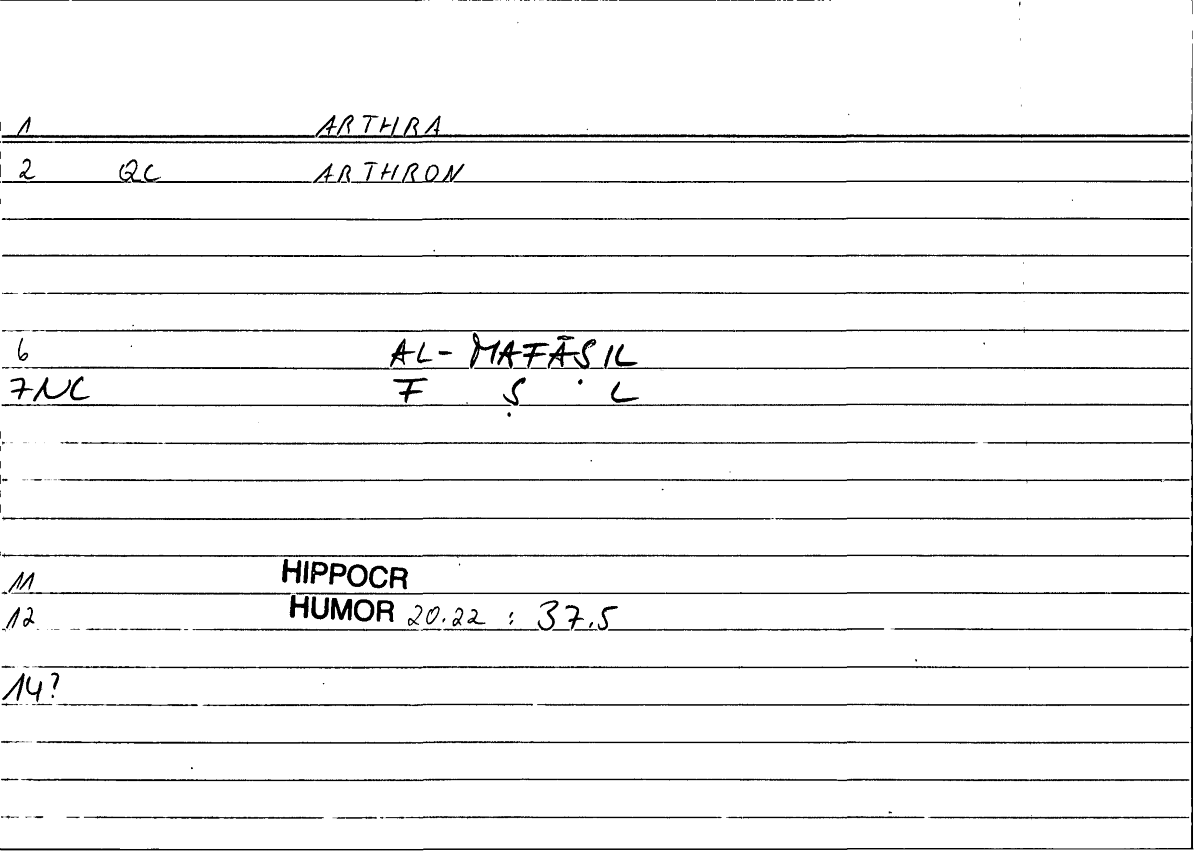 1 ARTHRA
2 QC ARTHRON
6 AL-MAFĀṢIL
7NC F Ṣ L
11 HIPPOCR
12 HUMOR 20.22 : 37.5
14?